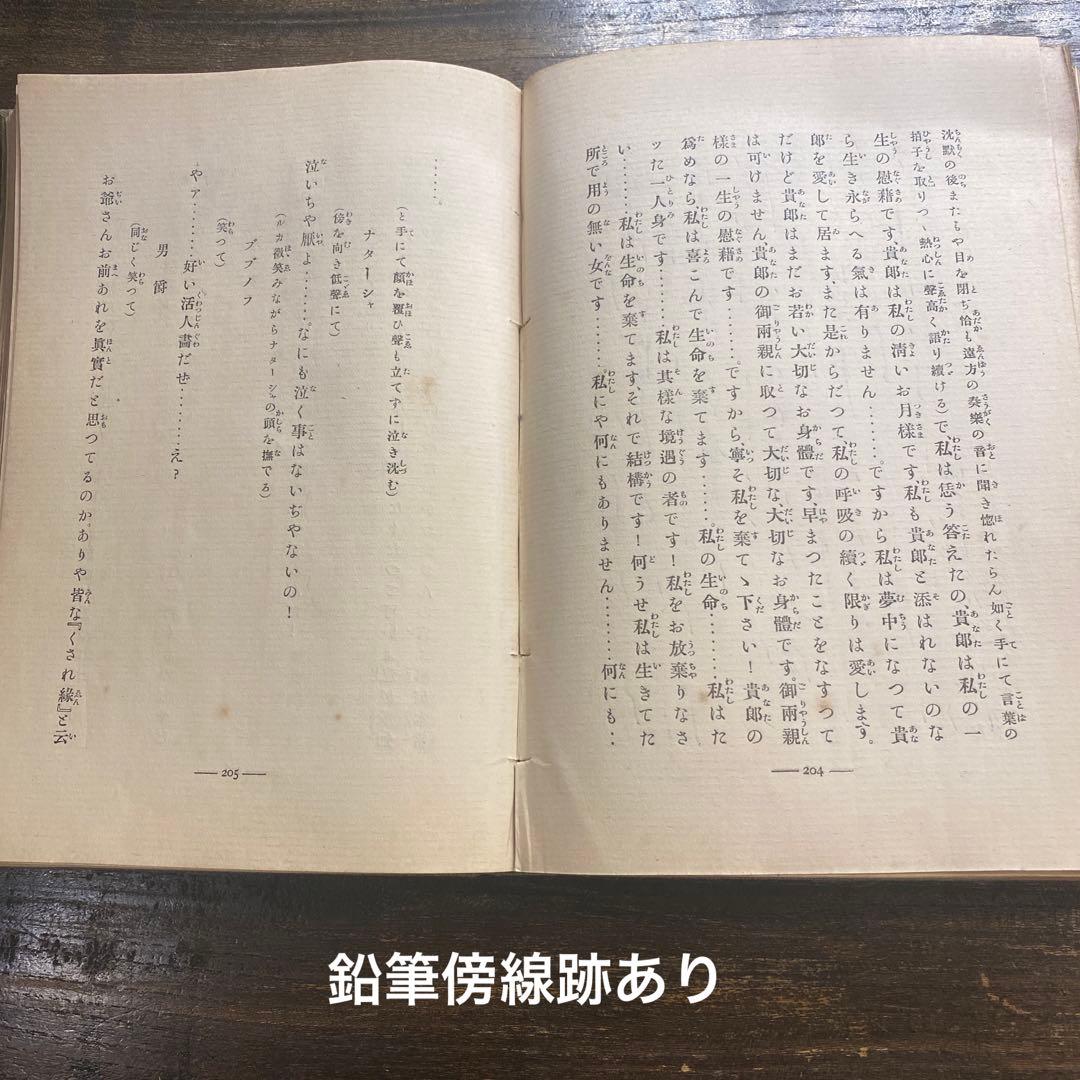 沈默の後またもや目を閉ぢ恰も遠方の奏樂の音に聞き惚れたらん如く手にて言葉の
拍子を取りつゝ熱心に聲高く語り續ける)で、私は恁う答えたの、貴郎は私の一
生の慰藉です、貴郎は私の淸いお月樣です、私も貴郎と添はれないのな
ら生き永らへる氣は有りません……。ですから私は夢中になつて貴
郎を愛して居ます、また是からだつて、私の呼吸の續く限りは愛します。
だけど貴郎はまだお若い大切なお身體です、早まつたことをなすつて
は可けません、貴郎の御兩親に取つて大切な大切なお身體です。御兩親
樣の一生の慰藉です……。ですから、寧そ私を棄てゝ下さい！貴郎の
爲めなら、私は喜こんで生命を棄てます……。私の生命……私はた
ッた一人身です……私は其樣な境遇の者です！私をお放棄りなさ
い……私は生命を棄てます、それで結構です！何うせ私は生きてた
所で用の無い女です……。私にや何にもありません……何にも‥
204
‥‥‥
(と手にて顏を覆ひ聲も立てずに泣き沈む)
ナターシャ
(傍を向き低聲にて)
泣いちや厭よ……。なにも泣く事はないぢやないの！
(ルカ微笑みながらナターシャの頭を撫でる)
ブブノフ
(笑つて)
やァ……好い活人畵だぜ……え？
男爵
(同じく笑つて)
お爺さんお前あれを眞實だと思つてるのか。ありや皆な『くされ緣』と云
205
鉛筆傍線跡あり